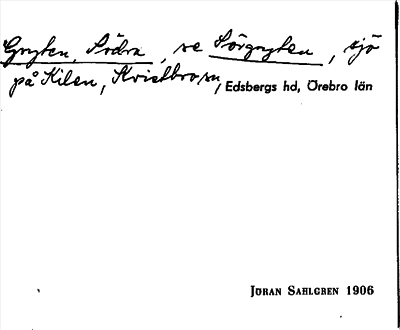 Gryten, Södra, se Sörgryten, sjö
på Kilen, Kvistbro sn, Edsbergs hd, Örebro län
JÖRAN SAHLGREN 1906